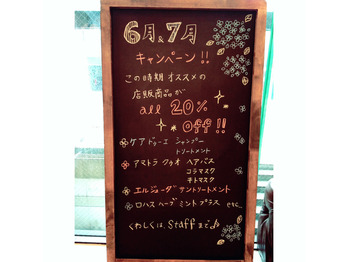 6月&7月
キャンペーン!!
この時期 オススメの
店販商品が
all 20%
off!!
ケアトゥーエ シャンプー
トリートメント
アマトラ クゥオ ヘアバス
コラマスク
キトマスク
エルジューダ サントリートメント
ロハスハーブ ミントプラス etc
くわしくは、staffまで♪